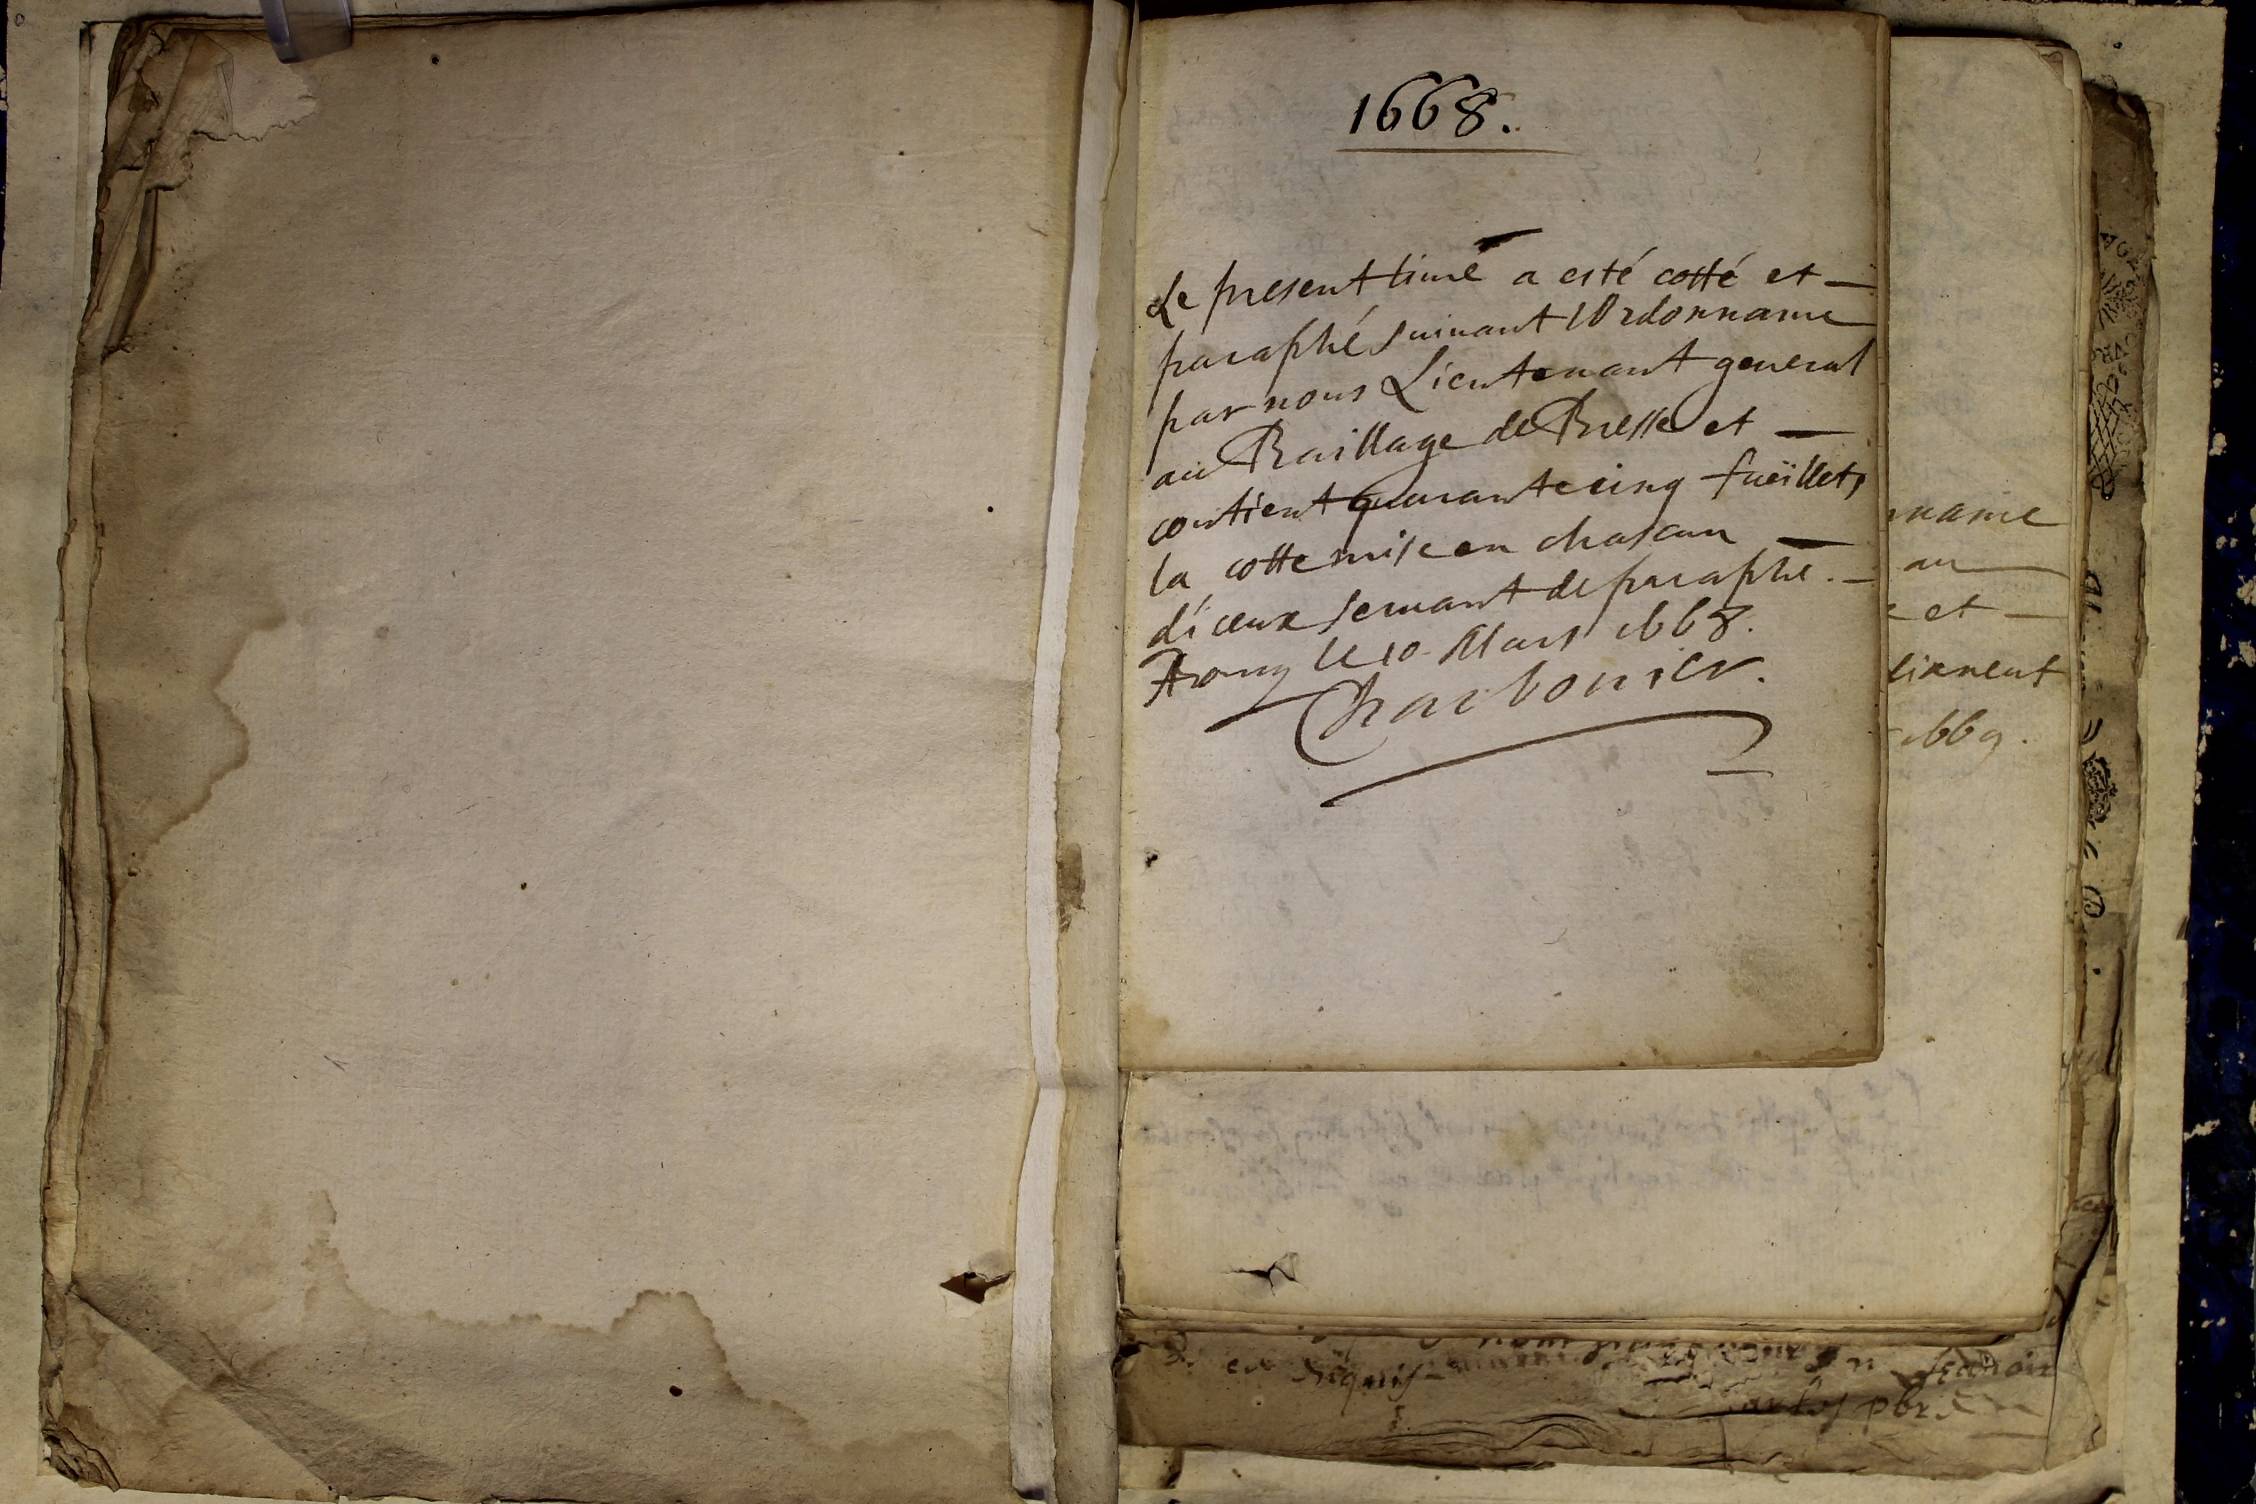 1668.
Le present liure a esté cotté et
paraphé suiuant lOrdonnance
par nous Lieutenant general
au Bailliage de Bresse et
contient quarante cinq fueillets
la cotte mise en chascun
diceux seruant de paraphe.
A bourg le 10 Mars 1668.
Charbonier.
nnance
au
et
tiennent
1669.
pbre